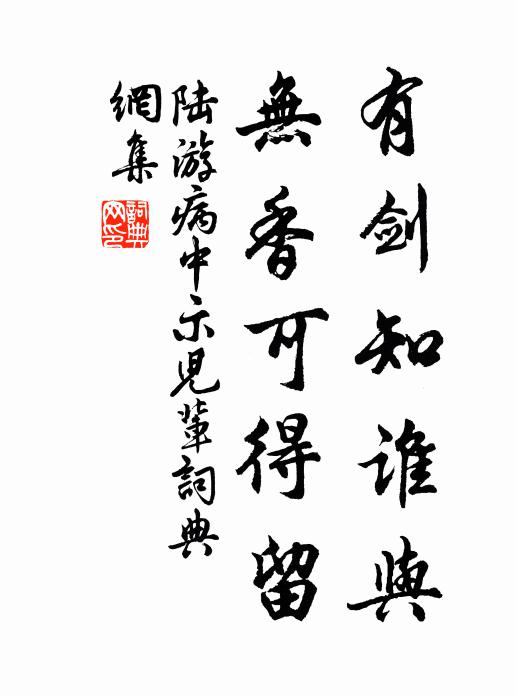 有剑知谁與
無香可得留
陆游病中示児輩詞典
網集
詞典网印